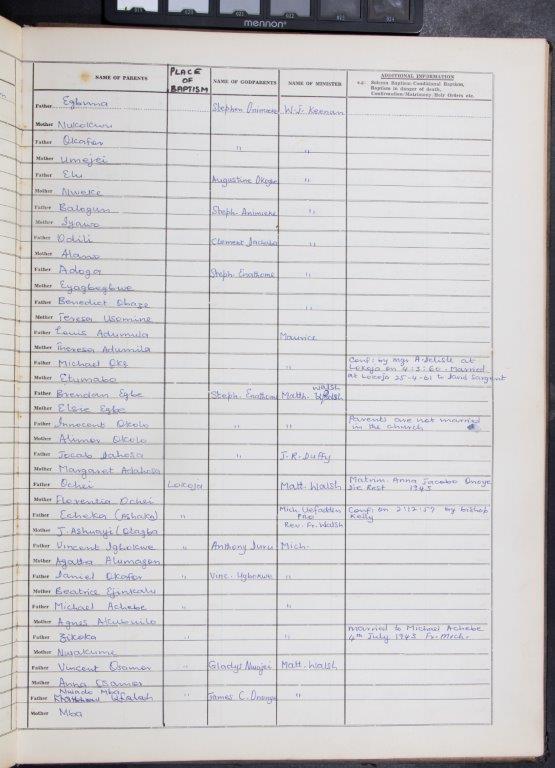 mennon
NAME OF PARENTS PLACE OF BAPTISM NAME OF GODPARENTS NAME OF MINISTER ADDITIONAL INFORMATION
e.g. Solemn Baptism-Conditional Baptism,
Baptism in danger of death,
Confirmation/Matrimony/Holy Orders etc.
Father Egbuna Stephen W.J. Keenan
Mother
Father Okafor " "
Mother Umejei
Father Elu Augustine Okegbe "
Mother Nweke
Father Balogun Steph. Animieke "
Mother Iyawo
Father Odili Clement "
Mother Alamo
Father Adoga Steph. Enathome "
Mother Egagbegbwe
Father Benedict Obaze "
Mother Teresa Usomine
Father Louis Adumula Maurice
Mother Theresa Adumila
Father Michael Oke " Conf: by Mgr A. Delisle at
Lokoja on 4.3.60. Married
Mother Etumabo at Lokoja 25-4-61 to Sargent
Father Brendan Egbe Steph. Enathome Matth. Walsh
Mother Elsie Egbe
Father Innocent Okolo " " Parents are not married
in the church
Mother Okolo
Father Jacob " J.R. Duffy
Mother Margaret
Father Ochei Lokoja Matt. Walsh Matrim. Anna Jacobo Onoye
1945
Mother Florentia Ochei
Father Echeka (Ashaka) " Mich. Conf: on 2.12.57 by Bishop
Pro Kelly
Mother J. Ashuayi (Otagba Rev. Fr. Walsh
Father Vincent Igbokwe " Anthony Mich.
Mother Agatha Alumagon
Father Daniel Okafor " Vinc. Ugbokwe "
Mother Beatrice Ejinkalu
Father Michael Achebe " "
Mother Agnes Akubuilo
Father Zikoka " " Married to Michael Achebe
4th July 1943 Fr. Mich.
Mother Nwakume
Father Vincent Osamor " Gladys Nwajei Matt. Walsh
Mother Anna Osamor
Nwado Mba
Father " James C. "
Mother Mba